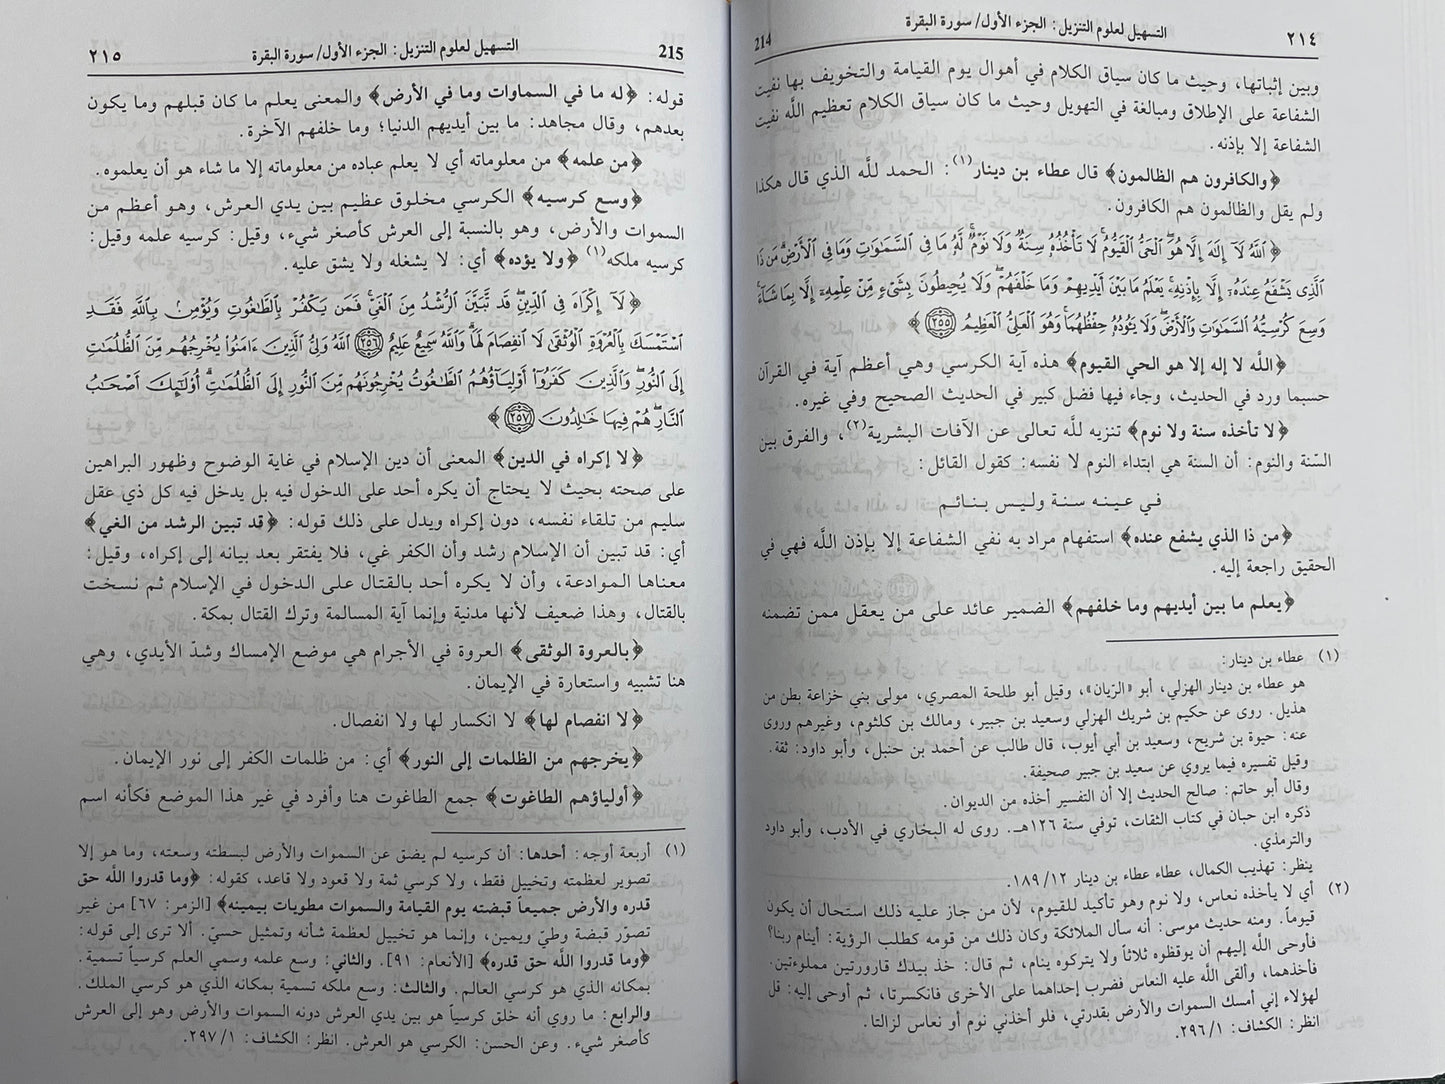 التسهيل لعلوم التنزيل: الجزء الأول/ سورة البقرة
٢١٤
214
وبين إثباتها، وحيث ما كان سياق الكلام في أهوال يوم القيامة والتخويف بها نفيت
الشفاعة على الإطلاق ومبالغة في التهويل وحيث ما كان سياق الكلام تعظيم اللَّه نفيت
الشفاعة إلا بإذنه.
﴿والكافرون هم الظالمون﴾ قال عطاء بن دينار(١): الحمد للَّه الذي قال هكذا
ولم يقل والظالمون هم الكافرون.
﴿ اللَّهُ لَآ إِلَٰهَ إِلَّا هُوَ الْحَيُّ الْقَيُّومُ لَا تَأْخُذُهُ سِنَةٌ وَلَا نَوْمٌ لَّهُ مَا فِي السَّمَٰوَٰتِ وَمَا فِي الْأَرْضِ مَن ذَا
الَّذِي يَشْفَعُ عِندَهُ إِلَّا بِإِذْنِهِ يَعْلَمُ مَا بَيْنَ أَيْدِيهِمْ وَمَا خَلْفَهُمْ وَلَا يُحِيطُونَ بِشَيْءٍ مِّنْ عِلْمِهِ إِلَّا بِمَا شَاءَ
وَسِعَ كُرْسِيُّهُ السَّمَٰوَٰتِ وَالْأَرْضَ وَلَا يَئُودُهُ حِفْظُهُمَا وَهُوَ الْعَلِيُّ الْعَظِيمُ ٢٥٥ ﴾
﴿اللَّه لا إله إلا هو الحي القيوم﴾ هذه آية الكرسي وهي أعظم آية في القرآن
حسبما ورد في الحديث، وجاء فيها فضل كبير في الحديث الصحيح وفي غيره.
﴿لا تأخذه سنة ولا نوم﴾ تنزيه للَّه تعالى عن الآفات البشرية(٢)، والفرق بين
السّنة والنوم: أن السنة هي ابتداء النوم لا نفسه: كقول القائل:
في عينه سنة وليس بنائم
﴿من ذا الذي يشفع عنده﴾ استفهام مراد به نفي الشفاعة إلا بإذن اللَّه فهي في
الحقيق راجعة إليه.
﴿يعلم ما بين أيديهم وما خلفهم﴾ الضمير عائد على من يعقل ممن تضمنه
(١) عطاء بن دينار:
هو عطاء بن دينار الهزلي، أبو «الرّيان»، وقيل أبو طلحة المصري، مولى بني خزاعة بطن من
هذيل. روى عن حكيم بن شريك الهزلي وسعيد بن جبير، ومالك بن كلثوم، وغيرهم وروى
عنه: حيوة بن شريح، وسعيد بن أبي أيوب، قال طالب عن أحمد بن حنبل، وأبو داود: ثقة.
وقيل تفسيره فيما يروي عن سعيد بن جبير صحيفة.
وقال أبو حاتم: صالح الحديث إلا أن التفسير أخذه من الديوان.
ذكره ابن حبان في كتاب الثقات، توفي سنة ١٢٦هـ. روى له البخاري في الأدب، وأبو داود
والترمذي.
ينظر: تهذيب الكمال، عطاء عطاء بن دينار ١٢/ ١٨٩.
(٢) أي لا يأخذه نعاس، ولا نوم وهو تأكيد للقيوم، لأن من جاز عليه ذلك استحال أن يكون
قيوماً. ومنه حديث موسى: أنه سأل الملائكة وكان ذلك من قومه كطلب الرؤية: أينام ربنا؟
فأوحى اللَّه إليهم أن يوقظوه ثلاثاً ولا يتركوه ينام، ثم قال: خذ بيدك قارورتين مملوءتين.
فأخذهما، وألقى اللَّه عليه النعاس فضرب إحداهما على الأخرى فانكسرتا، ثم أوحى إليه: قل
لهؤلاء إني أمسك السموات والأرض بقدرتي، فلو أخذني نوم أو نعاس لزالتا.
انظر: الكشاف: ١/ ٢٩٦.
215
التسهيل لعلوم التنزيل: الجزء الأول/ سورة البقرة
٢١٥
قوله: ﴿له ما في السماوات وما في الأرض﴾ والمعنى يعلم ما كان قبلهم وما يكون
بعدهم، وقال مجاهد: ما بين أيديهم الدنيا؛ وما خلفهم الآخرة.
﴿من علمه﴾ من معلوماته أي لا يعلم عباده من معلوماته إلا ما شاء هو أن يعلموه.
﴿وسع كرسيه﴾ الكرسي مخلوق عظيم بين يدي العرش، وهو أعظم من
السموات والأرض، وهو بالنسبة إلى العرش كأصغر شيء، وقيل: كرسيه علمه وقيل:
كرسيه ملكه(١) ﴿ولا يؤده﴾ أي: لا يشغله ولا يشق عليه.
﴿ لَآ إِكْرَاهَ فِي الدِّينِ قَد تَّبَيَّنَ الرُّشْدُ مِنَ الْغَيِّ فَمَن يَكْفُرْ بِالطَّٰغُوتِ وَيُؤْمِنۢ بِاللَّهِ فَقَدِ
اسْتَمْسَكَ بِالْعُرْوَةِ الْوُثْقَىٰ لَا انفِصَامَ لَهَا وَاللَّهُ سَمِيعٌ عَلِيمٌ ٢٥٦ اللَّهُ وَلِيُّ الَّذِينَ ءَامَنُوا يُخْرِجُهُم مِّنَ الظُّلُمَٰتِ
إِلَى النُّورِ وَالَّذِينَ كَفَرُوٓا أَوْلِيَآؤُهُمُ الطَّٰغُوتُ يُخْرِجُونَهُم مِّنَ النُّورِ إِلَى الظُّلُمَٰتِ أُو۟لَٰٓئِكَ أَصْحَٰبُ
النَّارِ هُمْ فِيهَا خَٰلِدُونَ ٢٥٧ ﴾
﴿لا إكراه في الدين﴾ المعنى أن دين الإسلام في غاية الوضوح وظهور البراهين
على صحته بحيث لا يحتاج أن يكره أحد على الدخول فيه بل يدخل فيه كل ذي عقل
سليم من تلقاء نفسه، دون إكراه ويدل على ذلك قوله: ﴿قد تبين الرشد من الغي﴾
أي: قد تبين أن الإسلام رشد وأن الكفر غي، فلا يفتقر بعد بيانه إلى إكراه، وقيل:
معناها الموادعة، وأن لا يكره أحد بالقتال على الدخول في الإسلام ثم نسخت
بالقتال، وهذا ضعيف لأنها مدنية وإنما آية المسالمة وترك القتال بمكة.
﴿بالعروة الوثقى﴾ العروة في الأجرام هي موضع الإمساك وشدّ الأيدي، وهي
هنا تشبيه واستعارة في الإيمان.
﴿لا انفصام لها﴾ لا انكسار لها ولا انفصال.
﴿يخرجهم من الظلمات إلى النور﴾ أي: من ظلمات الكفر إلى نور الإيمان.
﴿أولياؤهم الطاغوت﴾ جمع الطاغوت هنا وأفرد في غير هذا الموضع فكأنه اسم
(١) أربعة أوجه: أحدها: أن كرسيه لم يضق عن السموات والأرض لبسطته وسعته، وما هو إلا
تصوير لعظمته وتخييل فقط، ولا كرسي ثمة ولا قعود ولا قاعد، كقوله: ﴿وما قدروا اللَّه حق
قدره والأرض جميعاً قبضته يوم القيامة والسموات مطويات بيمينه﴾ [الزمر: ٦٧] من غير
تصوّر قبضة وطيّ ويمين، وإنما هو تخييل لعظمة شأنه وتمثيل حسيّ. ألا ترى إلى قوله:
﴿وما قدروا اللَّه حق قدره﴾ [الأنعام: ٩١]. والثاني: وسع علمه وسمي العلم كرسياً تسمية.
بمكانه الذي هو كرسي العالم. والثالث: وسع ملكه تسمية بمكانه الذي هو كرسي الملك.
والرابع: ما روي أنه خلق كرسياً هو بين يدي العرش دونه السموات والأرض وهو إلى العرش
كأصغر شيء. وعن الحسن: الكرسي هو العرش. انظر: الكشاف: ١/ ٢٩٧.